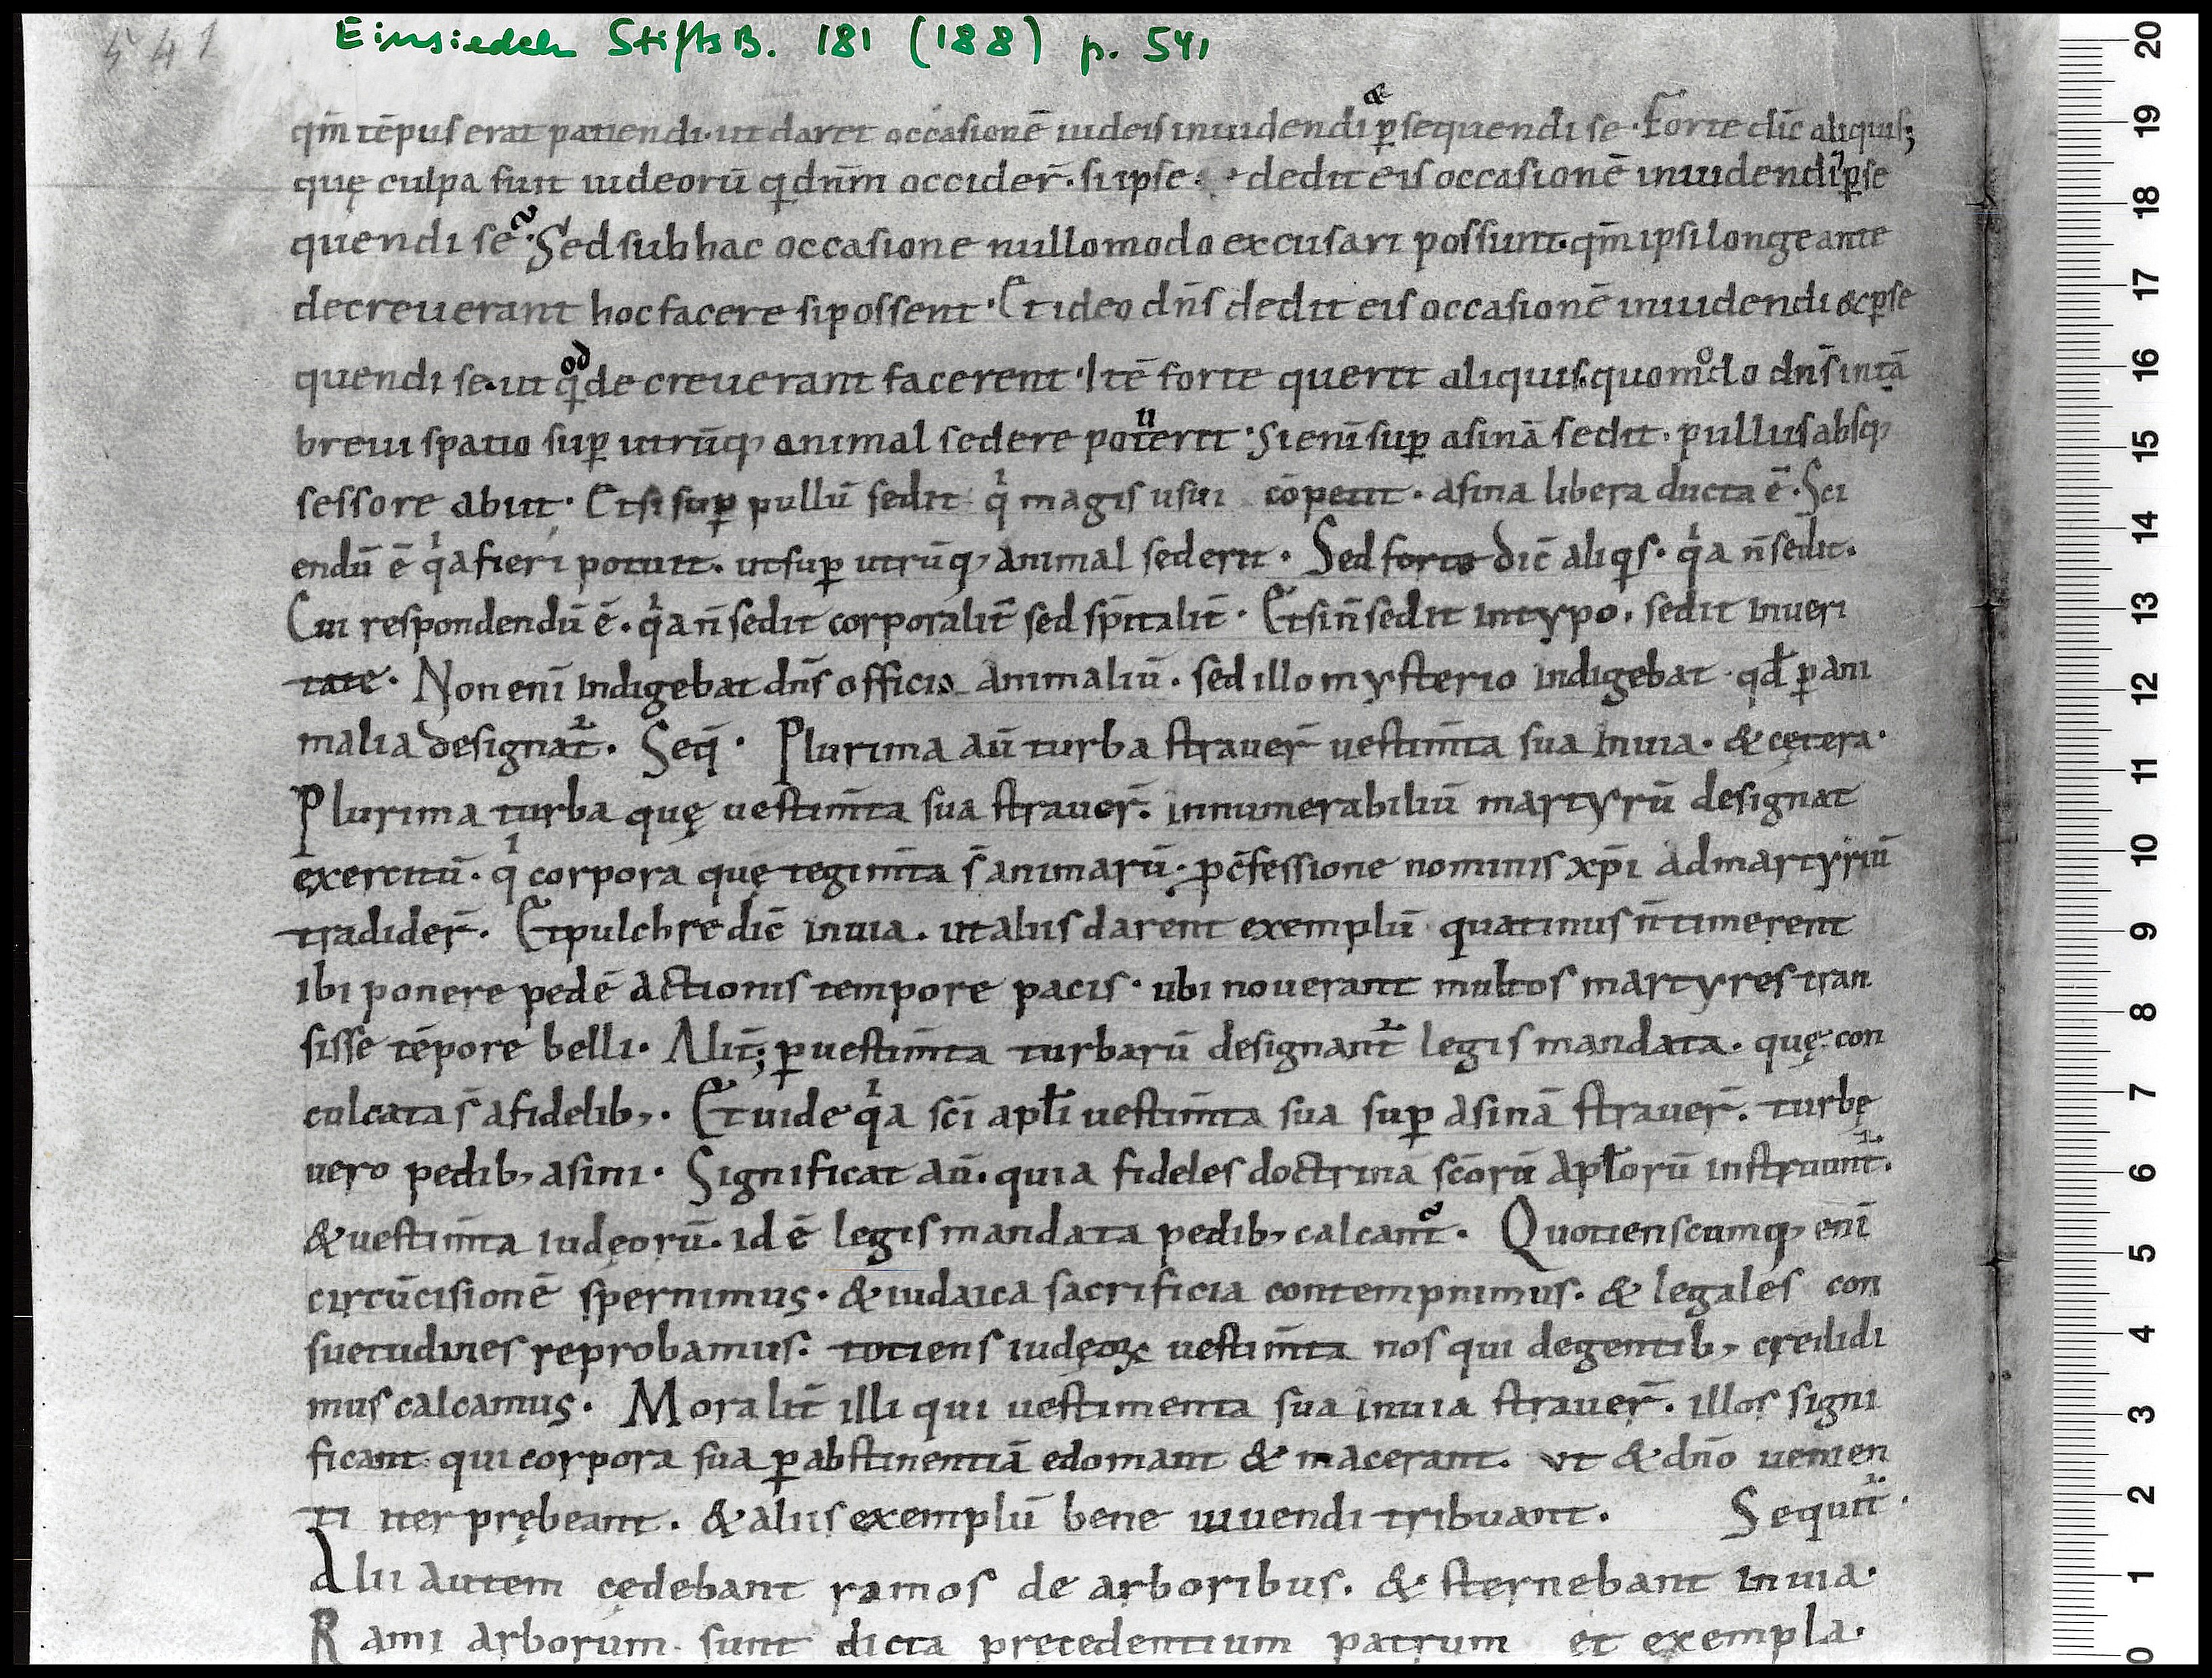 541
Einsiedeln StiftsB. 181 (188) p. 541
qm̄ tēpus erat patiendi· ut daret occasionē iudeis inuidendi & ꝑsequendi se· Forte dic̄ aliquis;
quę culpa fuit iudeorū q dn̄m occider̄· si ipse· dedit eis occasionē inuidendi ꝑse
quendi se· Sed sub hac occasione nullomodo excusari possunt· qm̄ ipsi longe ante
decreuerant hoc facere si possent· Et ideo dn̄s dedit eis occasionē inuidendi & ꝑse
quendi se· ut qod decreuerant facerent· Itē forte querit aliquis· quomodo dn̄s in tā
breui spatio suꝑ utrūq; animal sedere potuerit· Si enī suꝑ asinā sedit· pullus absq;
sessore abiit· Et si suꝑ pullū sedit qͥ magis usui cōpetit· asina libera ducta ē· Sci
endū ē qͥa fieri potuit· ut suꝑ utrūq; animal sederit· Sed forte dic̄ aliqs· qͥa n̄ sedit·
Cui respondendū ē· qͥa n̄ sedit corporalit̄ sed sp̄italit̄· Et si n̄ sedit in typo· sedit in ueri
tate· Non enī indigebat dn̄s officio animaliū· sed illo mysterio indigebat qd̄ ꝑ ani
malia designat᷑· Seq̄· Plurima aū turba strauer̄ uestim̄ta sua in uia· & cętera·
Plurima turba quę uestim̄ta sua strauer̄· innumerabiliū martyrū designat
exercitū· qͥ corpora quę tegim̄ta s̄ animarū· ꝓ c̄fessione nominis xp̄i ad martyriū
tradider̄· Et pulchre dic̄ in uia· ut aliis darent exemplū quatinus n̄ timerent
ibi ponere pedē actionis tempore pacis· ubi nouerant multos martyres tran
sisse tēpore belli· Alit̄; ꝑ uestim̄ta turbarū designant᷑ legis mandata· quę con
culcata s̄ a fidelib;· Et uide qͥa sc̄i apl̄i uestim̄ta sua suꝑ asinā strauer̄· turbę
uero pedib; asini· Significat aū· quia fideles doctrina sc̄orū apl̄orū instruunt᷑·
& uestim̄ta iudęorū· id ē legis mandata pedib; calcant᷑· Quotienscumq; enī
circūcisionē spernimus· & iudaica sacrificia contempnimus· & legales con
suetudines reprobamus· totiens iudęoꝝ uestim̄ta nos qui de gentib; credidi
mus calcamus· Moralit̄ illi qui uestimenta sua in uia strauer̄· illos signi
ficant qui corpora sua ꝑ abstinentiā edomant & macerant· ut & dn̄o uenien
ti iter prębeant· & aliis exemplū bene uiuendi tribuant· Sequit᷑·
Alii autem cędebant ramos de arboribus· & sternebant in uia·
Rami arborum sunt dicta precedentium patrum et exempla·
20
19
18
17
16
15
14
13
12
11
10
9
8
7
6
5
4
3
2
1
0